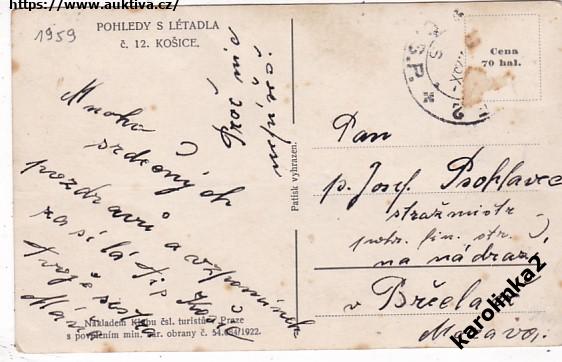 https://www.auktiva.cz/
1959
POHLEDY S LÉTADLA
č. 12. KOŠICE.
Cena
70 hal.
S.P.
Proč nic
nepíšeš?
Mnoho
srdečných
pozdravů a vzpomínek
zasílá
Tvoje sestra
Máňa
Patisk vyhrazen.
Pan
p. Josef Psohlavec
strážmistr
pohr. fin. str.
na nádraží
v Břeclavě
Morava.
Nákladem Klubu čsl. turistů v Praze
s povolením min. nár. obrany č. /1922.
karolinka2